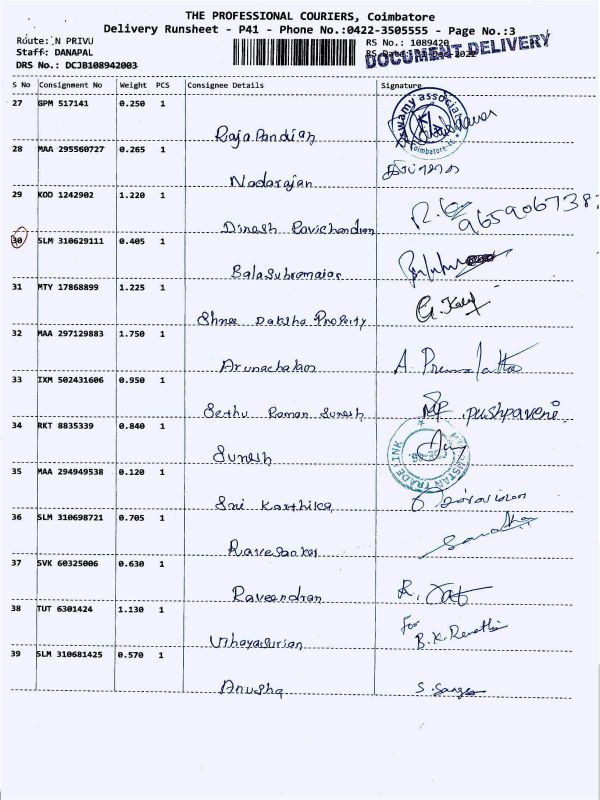 THE PROFESSIONAL COURIERS, Coimbatore
Delivery Runsheet - P41 - Phone No.:0422-3505555 - Page No.:3
Route: N PRIVU
RS No.: 1089420
DOCUMENT DELIVERY
Staff: DANAPAL
DRS No.: DCJB108942003
S No Consignment No Weight PCS Consignee Details Signature
27 GPM 517141 0.250 1
Raja Pandian
28 MAA 295560727 0.265 1
Nadarajan
29 KOD 1242902 1.220 1
Dinesh Ravichandran 965906738
30 SLM 310629111 0.405 1
Balasubramaiar
31 MTY 17868899 1.225 1
Shree Daksha Property
32 MAA 297129883 1.750 1
Arunachalan A. Premalatha
33 IXM 502431606 0.950 1
Sethu Raman Suresh pushpaveni
34 RKT 8835339 0.840 1
Suresh
35 MAA 294949538 0.120 1
Sri Karthika
36 SLM 310698721 0.705 1
Ravesankar
37 SVK 60325006 0.630 1
Raveendran
38 TUT 6301424 1.130 1
For
Vihayasurian B.K. Revathi
39 SLM 310681425 0.570 1
Anusha